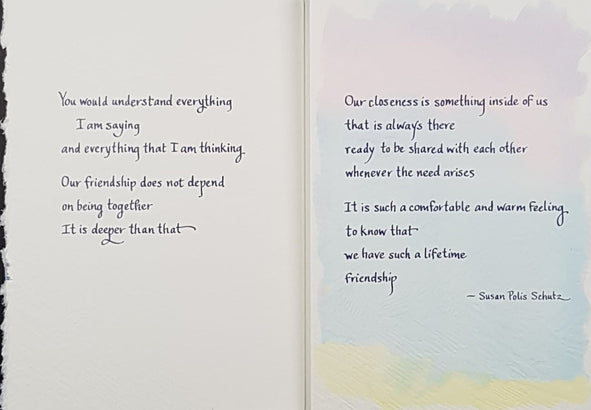 You would understand everything
I am saying
and everything that I am thinking.
Our friendship does not depend
on being together
It is deeper than that
Our closeness is something inside of us
that is always there
ready to be shared with each other
whenever the need arises
It is such a comfortable and warm feeling
to know that
we have such a lifetime
friendship
— Susan Polis Schutz